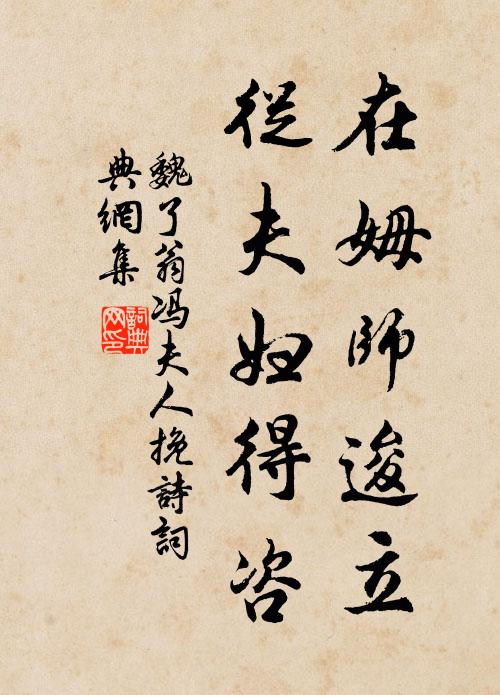 在姆師逡立
從夫妇得咨
魏了翁冯夫人挽詩詞
典網集
詞典网印